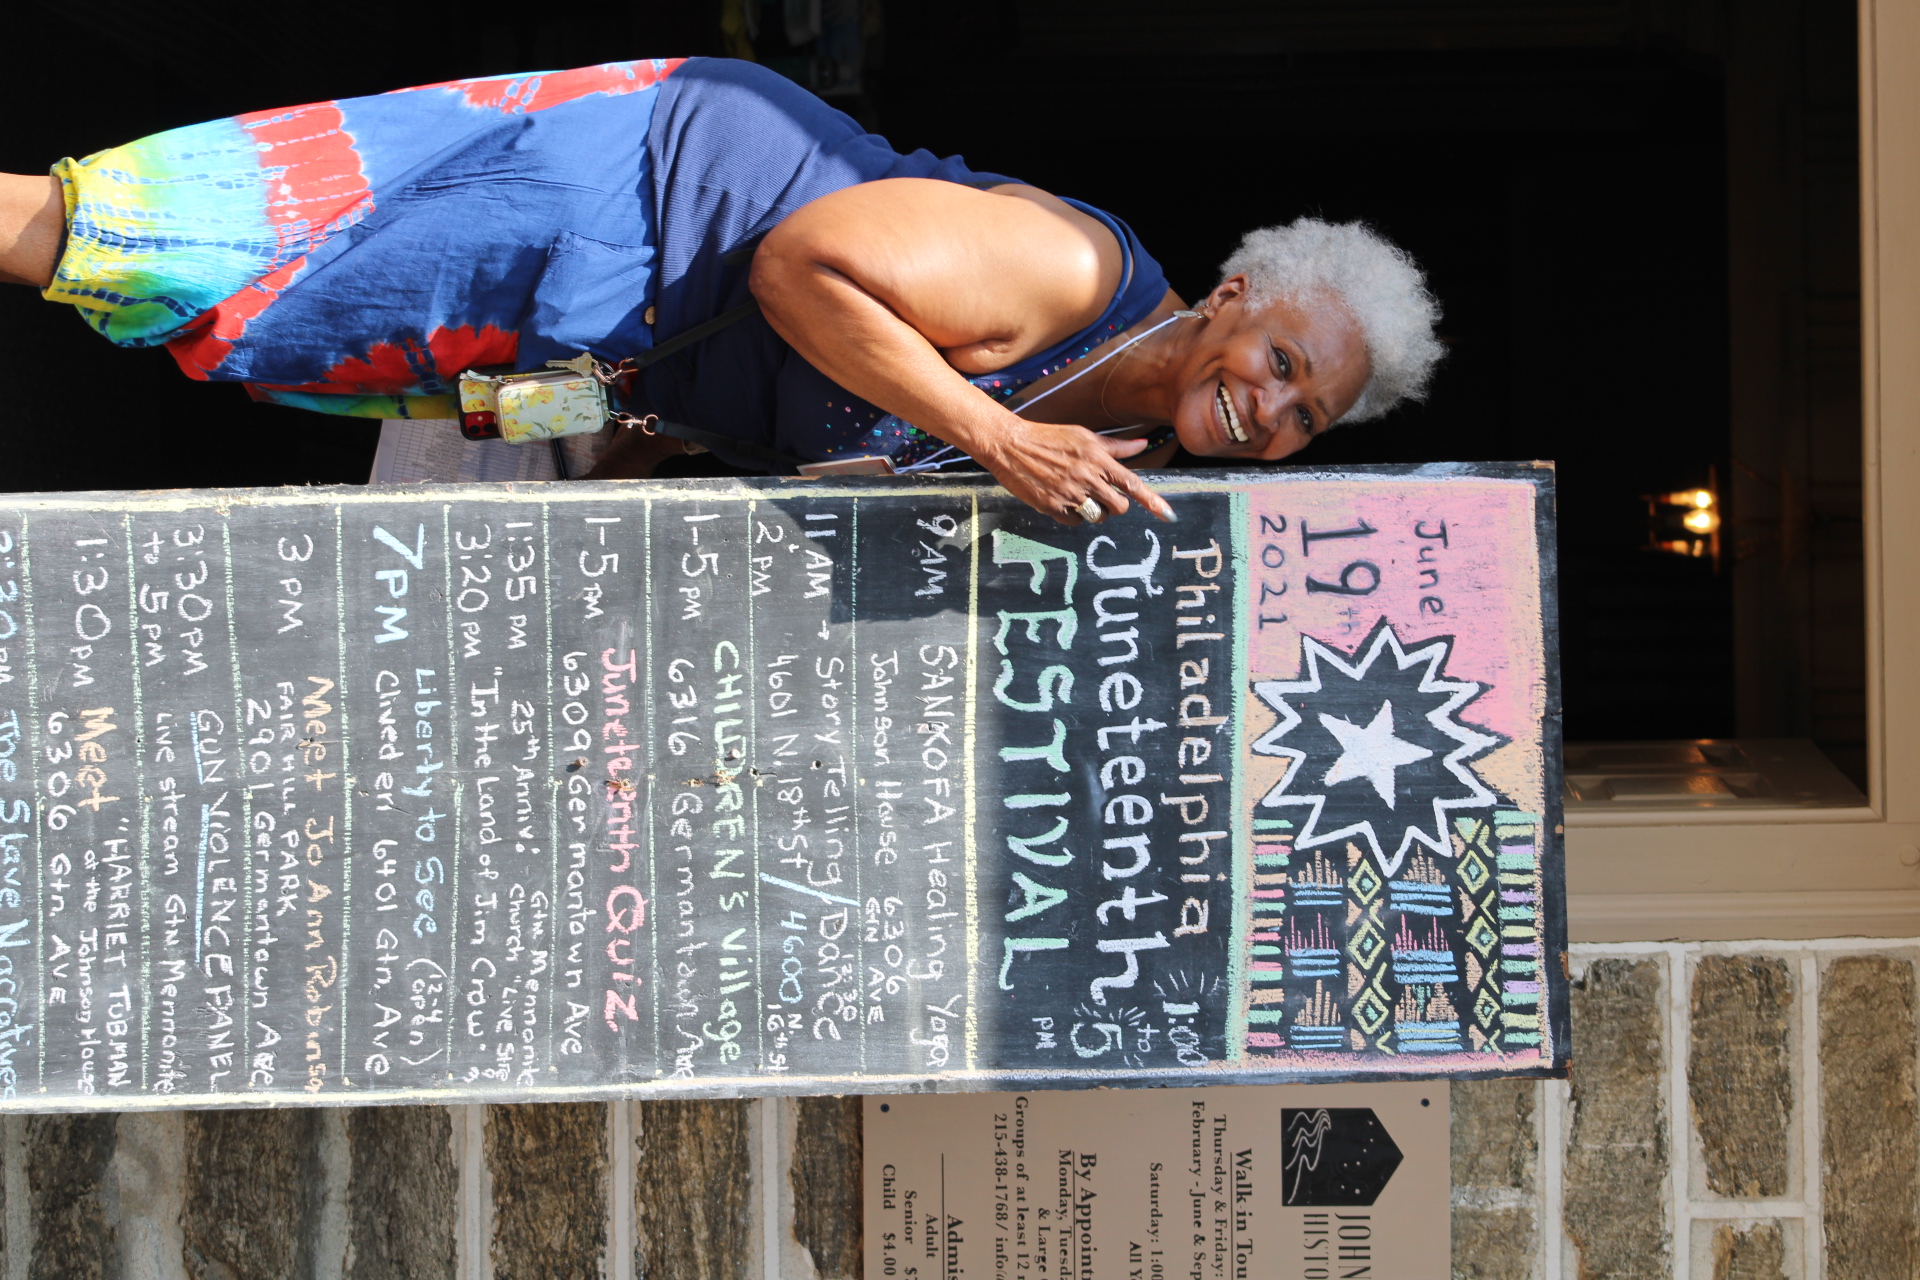 June
19th
2021
Philadelphia
Juneteenth
FESTIVAL
1:00
to
5
PM
9 AM SANKOFA Healing Yoga
Johnson House 6306
GTN AVE
11 AM - Story Telling/Dance
12:30
2 PM 4601 N. 18th St/4600 N.
16th St
CHILDREN'S Village
1-5 PM 6316 Germantown Ave
Juneteenth Quiz
1-5 PM 6309 Germantown Ave
1:35 PM 25th Anniv: Gtn Mennonite
Church "Live Stre
3:20 PM "In the Land of Jim Crow"
Liberty to See (2-4
open)
7PM Cliveden 6401 Gtn. Ave
Meet Jo Ann Robinson
3 PM FAIR HILL PARK
2901 Germantown Ave
GUN VIOLENCE PANEL
3:30 PM
to 5 PM Live stream Gtn Mennonite
1:30 PM Meet "HARRIET TUBMAN
at the Johnson House
6306 Gtn. AVE
The Slave Narratives
JOHN
HISTO
Walk-in Tou
Thursday & Friday:
February - June & Sep
Saturday: 1:00
All Y
By Appoint
Monday, Tuesda
& Large
Groups of at least 12
215-438-1768 / info
Admis
Adult
Senior
Child $4.00